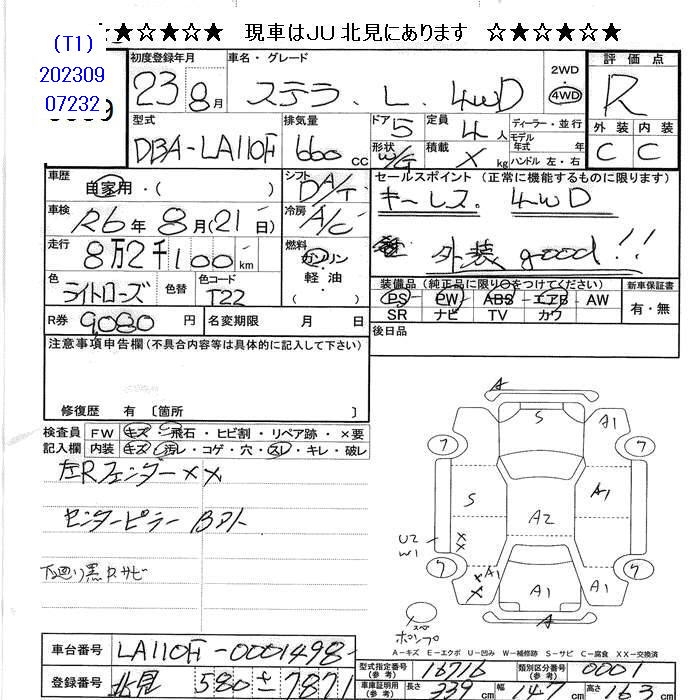 ★☆★☆★☆ 現車はJU北見にあります ☆★☆★☆★
(T1)
202309
07232
初度登録年月 23 8月
車名・グレード ステラ. L. 4WD
2WD
4WD
評価点 R
外装 内装
C C
型式 DBA-LA110F
排気量 660 CC
ドア 5 定員 4人
ディーラー・並行
モデル
年式 年
形状 W/G 積載 X kg ハンドル 左・右
車歴 自家用・( )
シフト DA/T
セールスポイント (正常に機能するものに限ります)
キーレス. 4WD
外装 good!!
車検 R6年8月(21日)
冷房 A/C
走行 8万2千100km
燃料 ガソリン
軽油
( )
色 ライトローズ 色替 色コード T22
装備品(純正品に限り○をつけてください) 新車保証書
PS PW ABS エアB AW 有・無
SR ナビ TV カワ
R券 9,080円 名変期限 月 日
後日品
注意事項申告欄(不具合内容等は具体的に記入して下さい)
修復歴 有 〔箇所 〕
検査員 FW キズ・飛石・ヒビ割・リペア跡・×要
記入欄 内装 キズ・汚レ・コゲ・穴・スレ・キレ・破レ
左Rフェンダー XX
センターピラー Bアト
下廻り黒P.サビ
A
S A1
7 7
S A1
A2
U2
W1
X
X
7 7
X A1
X
A1 A1
A
スペ
ポンプ
A-キズ E-エクボ U-凹み W-補修跡 S-サビ C-腐食 XX-交換済
車台番号 LA110F-0001498-
登録番号 北見 580 せ 7871
型式指定番号(参考) 16716 類別区分番号(参考) 0001
車庫証明用(参考) 長さ 339cm 幅 147cm 高さ 163cm